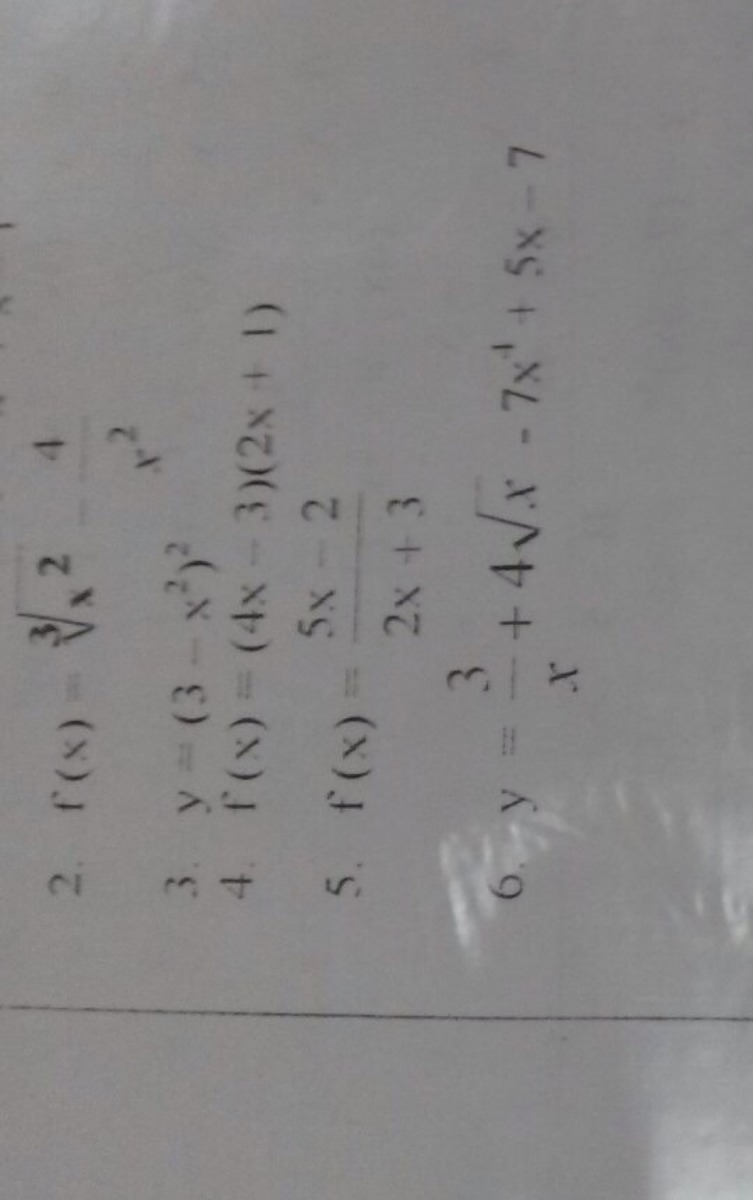 2. f(x) = ∛x² − 4/x²
3. y = (3 − x²)²
4. f(x) = (4x − 3)(2x + 1)
5. f(x) = (5x − 2)/(2x + 3)
6. y = 3/x + 4√x - 7x⁴ + 5x − 7